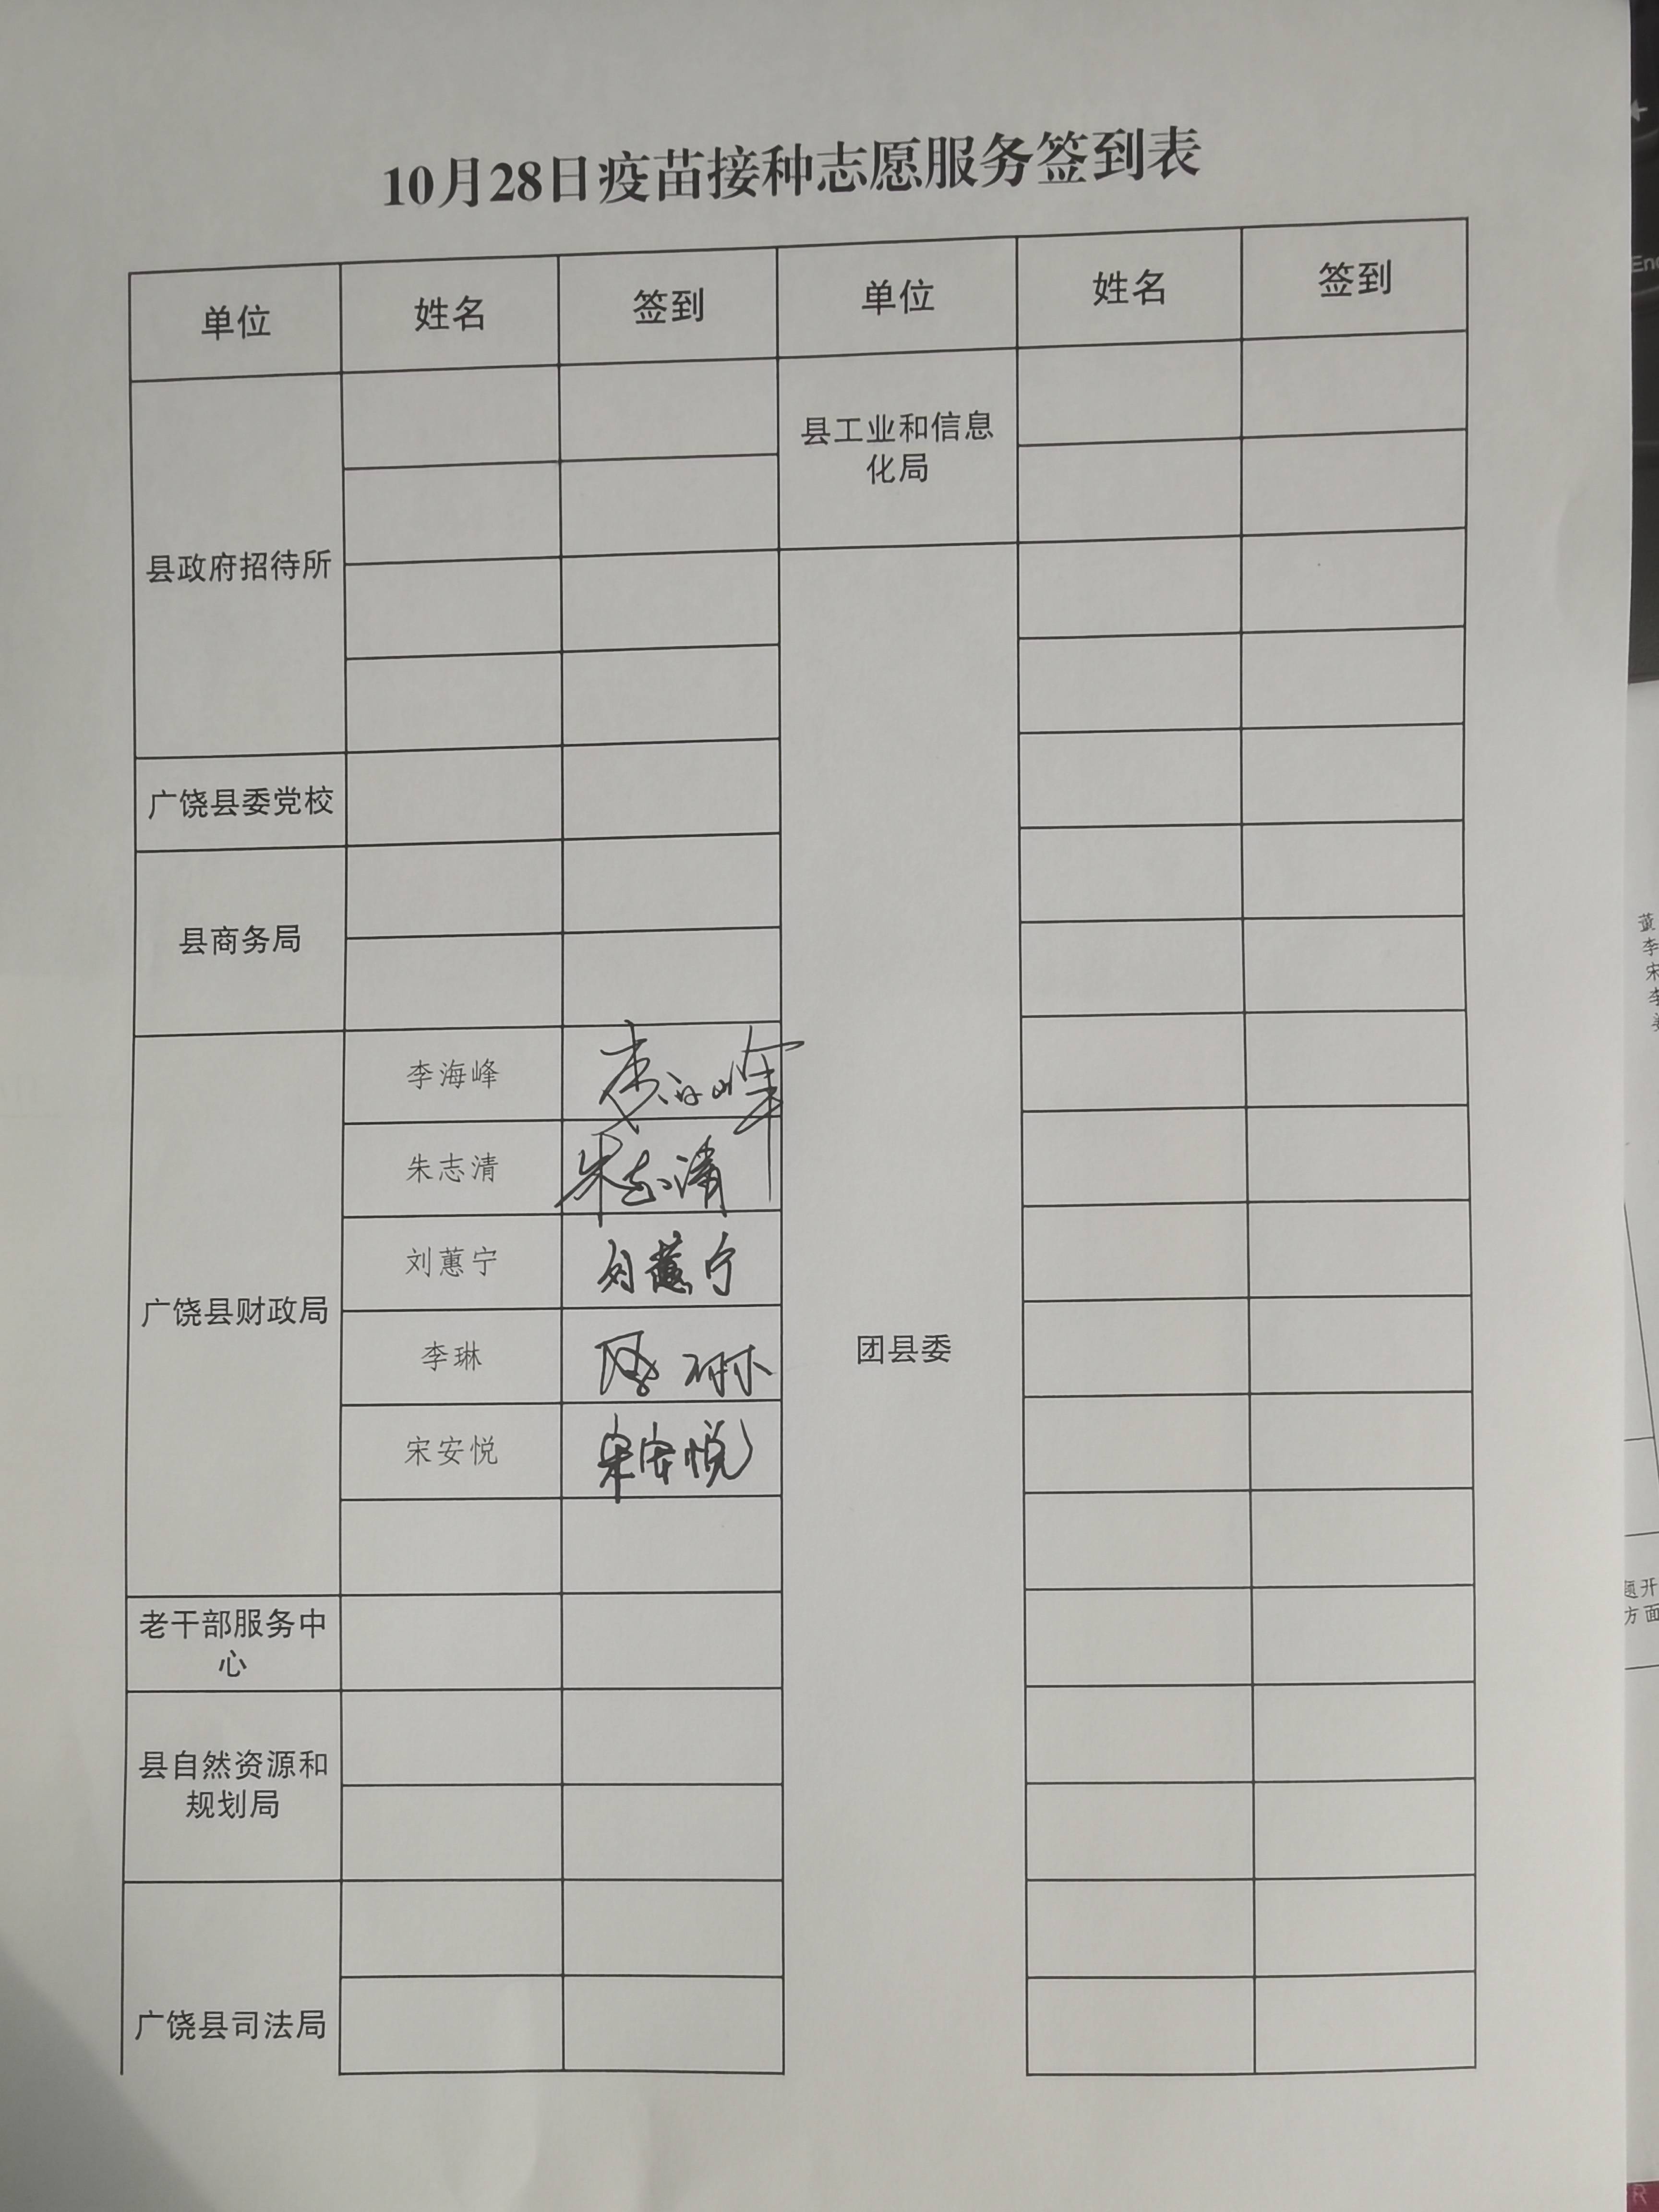 10月28日疫苗接种志愿服务签到表
单位 姓名 签到 单位 姓名 签到
县政府招待所
县工业和信息
化局
广饶县委党校
县商务局
广饶县财政局
李海峰 李海峰
朱志清 朱志清
刘蕙宁 刘蕙宁
李琳 李琳
宋安悦 宋安悦
团县委
老干部服务中
心
县自然资源和
规划局
广饶县司法局
董
李
宋
李
题开
方面
End